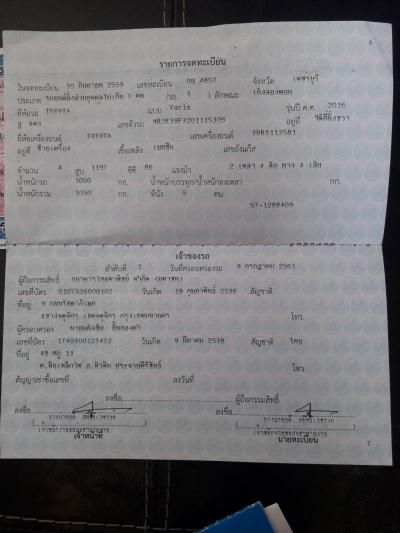 6
รายการจดทะเบียน
วันจดทะเบียน 30 กันยายน 2559 เลขทะเบียน กฎ 4857 จังหวัด เพชรบุรี
ประเภท รถยนต์นั่งส่วนบุคคลไม่เกิน 7 คน (รย. 1 ) ลักษณะ เก๋งสองตอน
ยี่ห้อรถ TOYOTA แบบ Yaris รุ่นปี ค.ศ. 2016
สี แดง เลขตัวรถ อยู่ที่
ยี่ห้อเครื่องยนต์ TOYOTA เลขเครื่องยนต์ 3NRS113581
อยู่ที่ ซ้ายเครื่อง เชื้อเพลิง เบนซิน เลขถังแก๊ส
จำนวน 4 สูบ 1197 ซีซี 86 แรงม้า 2 เพลา 4 ล้อ ยาง 4 เส้น
น้ำหนักรถ 1050 กก. น้ำหนักบรรทุก/น้ำหนักลงเพลา กก.
น้ำหนักรวม 1050 กก. ที่นั่ง 5 คน
57-1288409
เจ้าของรถ
ลำดับที่ 2 วันที่ครอบครองรถ 9 กรกฎาคม 2563
ผู้ถือกรรมสิทธิ์ ธนาคารไทยพาณิชย์ จำกัด (มหาชน)
เลขที่บัตร 0107536000102 วันเกิด 19 กุมภาพันธ์ 2536 สัญชาติ
ที่อยู่ 9 ถนนรัชดาภิเษก
แขวงจตุจักร เขตจตุจักร กรุงเทพมหานคร โทร.
ผู้ครอบครอง
เลขที่บัตร 1740300123452 วันเกิด 9 มิถุนายน 2538 สัญชาติ ไทย
ที่อยู่ 48 หมู่ 13
จ.ประจวบคีรีขันธ์ โทร.
สัญญาเช่าซื้อเลขที่ ลงวันที่
ลงชื่อ ผู้ถือกรรมสิทธิ์
ลงชื่อ ลงชื่อ
เจ้าหน้าที่ นายทะเบียน
7